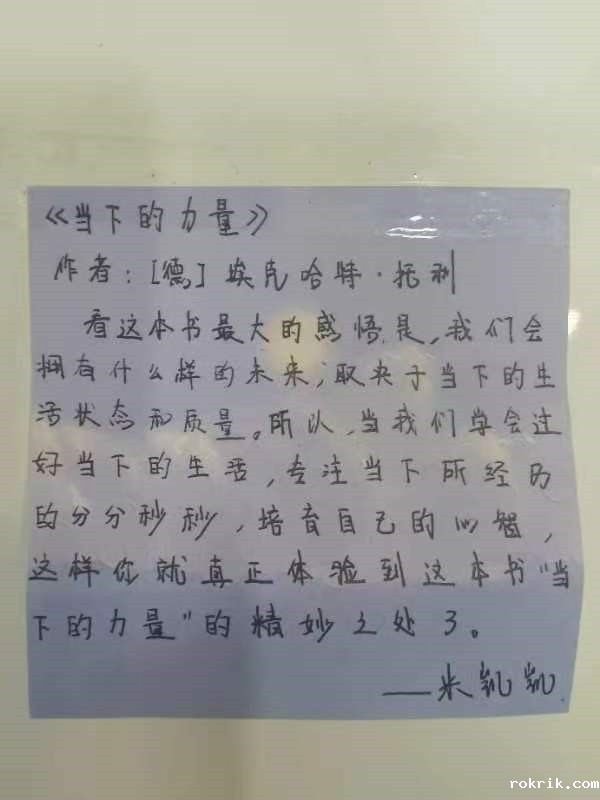 《当下的力量》
作者：[德]埃克哈特·托利
看这本书最大的感悟是，我们会
拥有什么样的未来，取决于当下的生
活状态和质量。所以，当我们学会过
好当下的生活，专注当下所经历
的分分秒秒，培育自己的心智，
这样你就真正体验到这本书“当
下的力量”的精妙之处了。
——米凯凯
rokrik.com